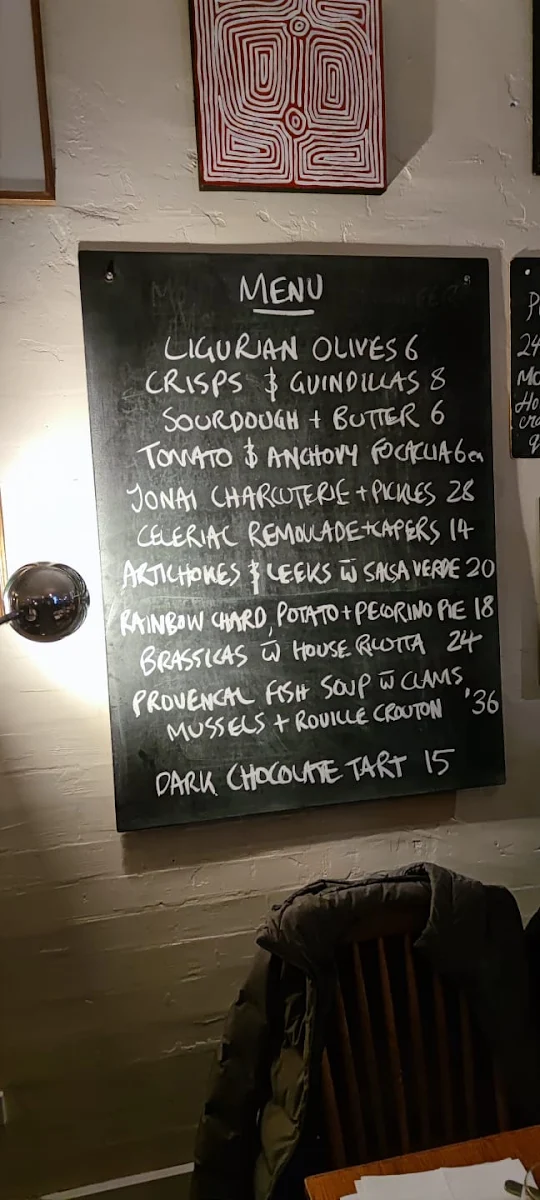 MENU
LIGURIAN OLIVES 6
CRISPS & GUINDILLAS 8
SOURDOUGH + BUTTER 6
TOMATO & ANCHOVY FOCACCIA 6ea
JONAI CHARCUTERIE + PICKLES 28
CELERIAC REMOULADE + CAPERS 14
ARTICHOKES & LEEKS W̅ SALSA VERDE 20
RAINBOW CHARD, POTATO + PECORINO PIE 18
BRASSICAS W̅ HOUSE RICOTTA 24
PROVENCAL FISH SOUP W̅ CLAMS,
MUSSELS + ROUILLE CROUTON 36
DARK CHOCOLATE TART 15
P
24
Mo
Ho
cra
9